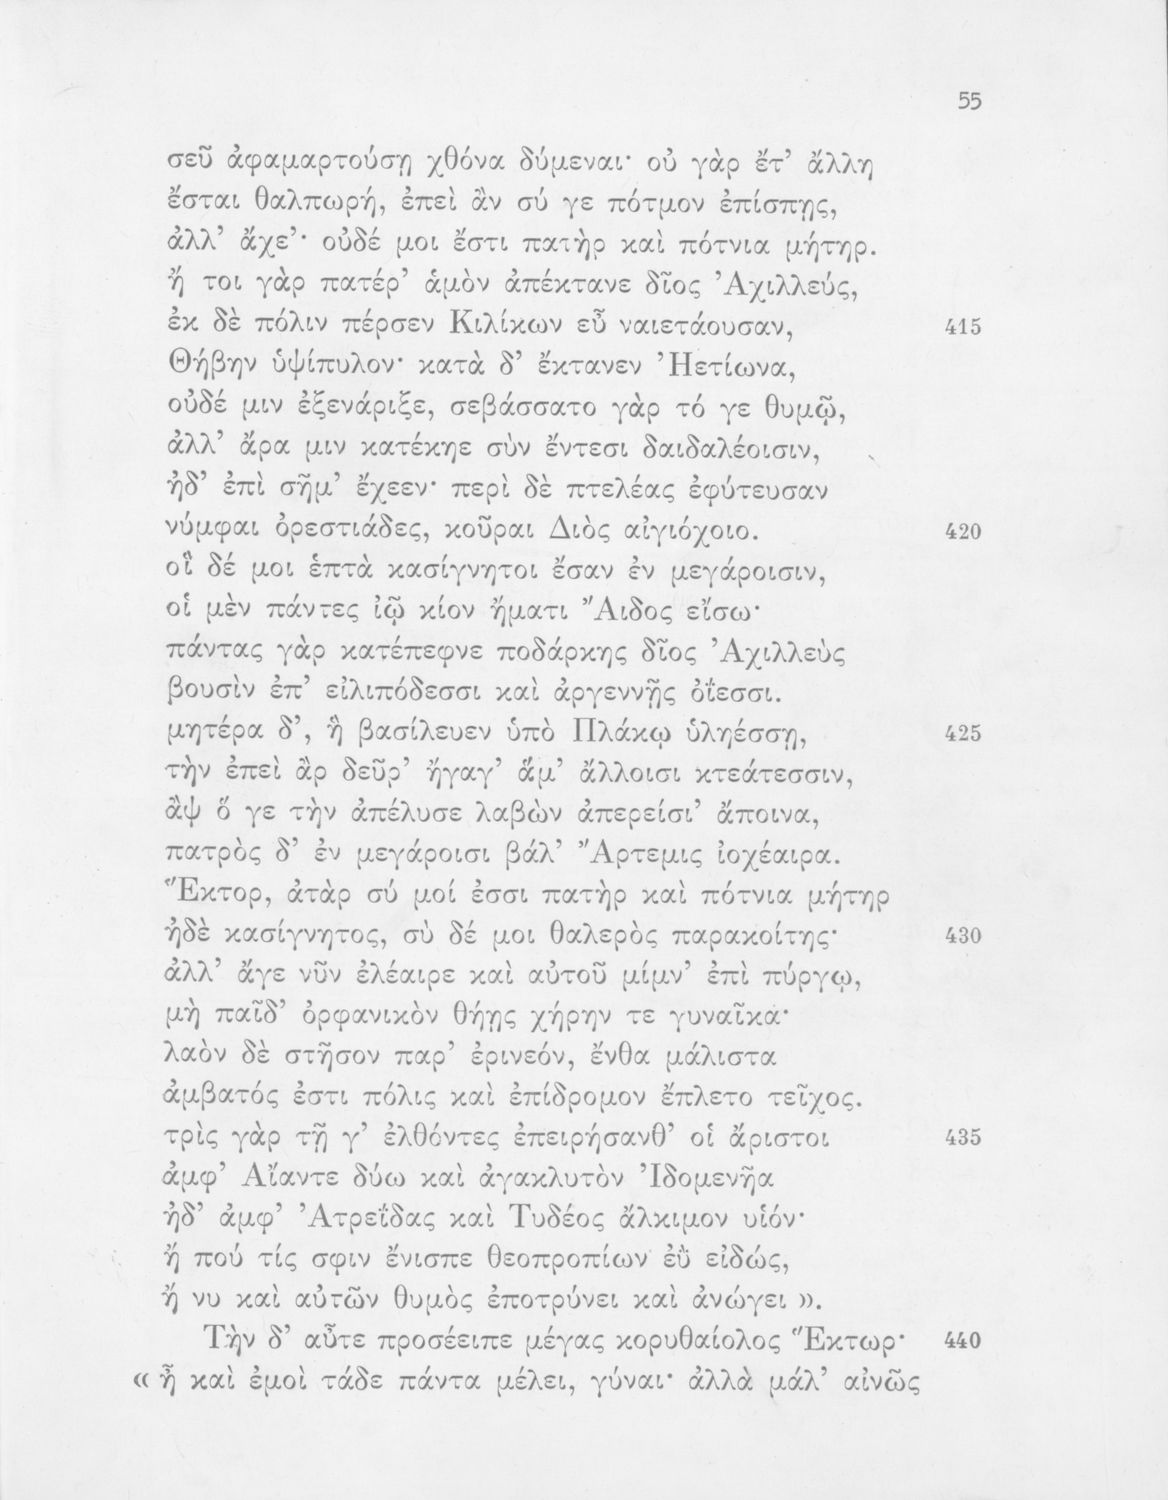 55
σεῦ ἀφαμαρτούσῃ χθόνα δύμεναι· οὐ γὰρ ἔτ’ ἄλλη
ἔσται θαλπωρή, ἐπεὶ ἂν σύ γε πότμον ἐπίσπῃς,
ἀλλ’ ἄχε’· οὐδέ μοι ἔστι πατὴρ καὶ πότνια μήτηρ.
ἤ τοι γὰρ πατέρ’ ἁμὸν ἀπέκτανε δῖος Ἀχιλλεύς,
ἐκ δὲ πόλιν πέρσεν Κιλίκων εὖ ναιετάουσαν, 415
Θήβην ὑψίπυλον· κατὰ δ’ ἔκτανεν Ἠετίωνα,
οὐδέ μιν ἐξενάριξε, σεβάσσατο γὰρ τό γε θυμῷ,
ἀλλ’ ἄρα μιν κατέκηε σὺν ἔντεσι δαιδαλέοισιν,
ἠδ’ ἐπὶ σῆμ’ ἔχεεν· περὶ δὲ πτελέας ἐφύτευσαν
νύμφαι ὀρεστιάδες, κοῦραι Διὸς αἰγιόχοιο. 420
οἳ δέ μοι ἑπτὰ κασίγνητοι ἔσαν ἐν μεγάροισιν,
οἱ μὲν πάντες ἰῷ κίον ἤματι Ἄιδος εἴσω·
πάντας γὰρ κατέπεφνε ποδάρκης δῖος Ἀχιλλεὺς
βουσὶν ἐπ’ εἰλιπόδεσσι καὶ ἀργεννῇς ὀΐεσσι.
μητέρα δ’, ἣ βασίλευεν ὑπὸ Πλάκῳ ὑληέσσῃ, 425
τὴν ἐπεὶ ἂρ δεῦρ’ ἤγαγ’ ἅμ’ ἄλλοισι κτεάτεσσιν,
ἂψ ὅ γε τὴν ἀπέλυσε λαβὼν ἀπερείσι’ ἄποινα,
πατρὸς δ’ ἐν μεγάροισι βάλ’ Ἄρτεμις ἰοχέαιρα.
Ἕκτορ, ἀτὰρ σύ μοί ἐσσι πατὴρ καὶ πότνια μήτηρ
ἠδὲ κασίγνητος, σὺ δέ μοι θαλερὸς παρακοίτης· 430
ἀλλ’ ἄγε νῦν ἐλέαιρε καὶ αὐτοῦ μίμν’ ἐπὶ πύργῳ,
μὴ παῖδ’ ὀρφανικὸν θήῃς χήρην τε γυναῖκα·
λαὸν δὲ στῆσον παρ’ ἐρινεόν, ἔνθα μάλιστα
ἀμβατός ἐστι πόλις καὶ ἐπίδρομον ἔπλετο τεῖχος.
τρὶς γὰρ τῇ γ’ ἐλθόντες ἐπειρήσανθ’ οἱ ἄριστοι 435
ἀμφ’ Αἴαντε δύω καὶ ἀγακλυτὸν Ἰδομενῆα
ἠδ’ ἀμφ’ Ἀτρεΐδας καὶ Τυδέος ἄλκιμον υἱόν·
ἤ πού τίς σφιν ἔνισπε θεοπροπίων ἐῢ εἰδώς,
ἤ νυ καὶ αὐτῶν θυμὸς ἐποτρύνει καὶ ἀνώγει ».
Τὴν δ’ αὖτε προσέειπε μέγας κορυθαίολος Ἕκτωρ· 440
« ἦ καὶ ἐμοὶ τάδε πάντα μέλει, γύναι· ἀλλὰ μάλ’ αἰνῶς